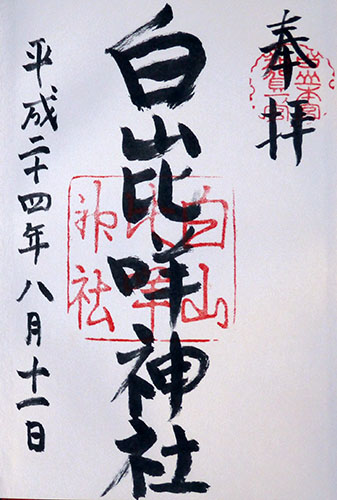 奉拝
白山比咩神社
平成二十四年八月十一日
白山
比咩
神社